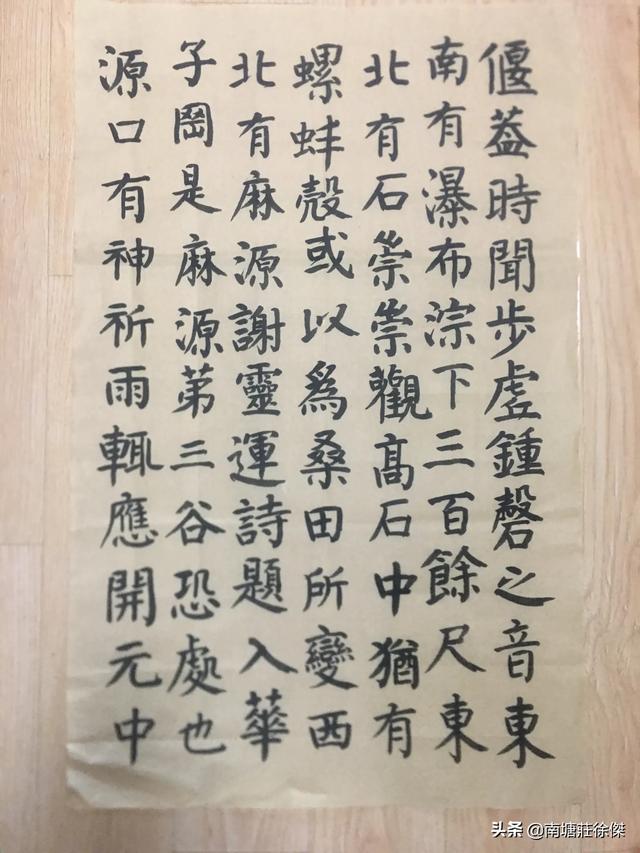 偃葢時聞步虛鍾磬之音東
南有瀑布淙下三百餘尺東
北有石崇崇觀髙石中猶有
螺蚌殼或以爲桑田所變西
北有麻源謝靈運詩題入華
子岡是麻源第三谷恐處也
源口有神祈雨輒應開元中
头条 @南塘莊徐傑